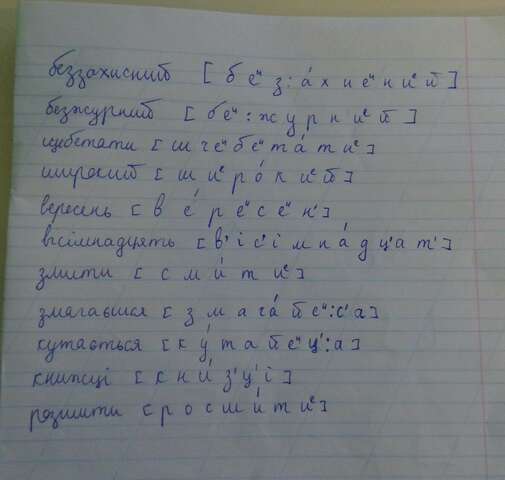 беззахисний [б еᶦ з: á х и е́ н иᵉ й]
безжурний [б еᶦ : ж у р н иᵉ й]
щебетати [ш ч еᶦ б еᶦ т á т иᵉ]
широкий [ш иᵉ р ó к иᵉ й]
вересень [в é р еᶦ с еᶦ н']
вісімнадцять [в' і с' і м н á д ц' а т']
змити [с м и́ т иᵉ]
змагаєшся [з м а г á й еᶦ : с' а]
кутається [к у́ т а й еᶦ ц' : а]
книжці [к н и́ з' ц' і]
розшити [р о с ш и́ т иᵉ]